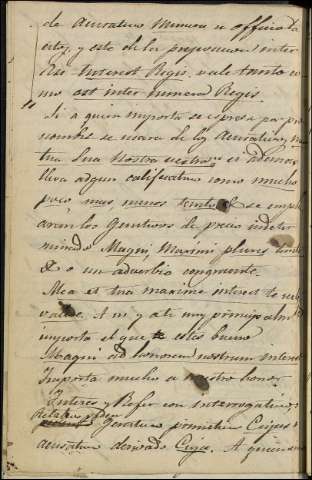 de Acusativo Munera u officio da
esto, y esto de las preposiciones inter
Así Interest Regis vale tanto co
mo est inter munera Regis.
Si a quien importa se expresa por pro
nombre se usara de los Acusativos, mea
tua sua nostra vestra, si ademas
lleva algun calificativo como mucho
poco mas, menos tanto &. se emple
aran los Genitivos de precio indeter
minado Magni, Maximi pluris tanti
&. o un adverbio congruente.
Mea et tua maxime interest te
valere. A mi y a ti muy principalm
importa el que estes bueno
Magni ad honorem nostrum interest
Importa mucho a nuestro honor.
Interes y Refer con interrogativo,
relativo
Genitivo primitivo Cujus
acusativo derivado Cuja. A quien